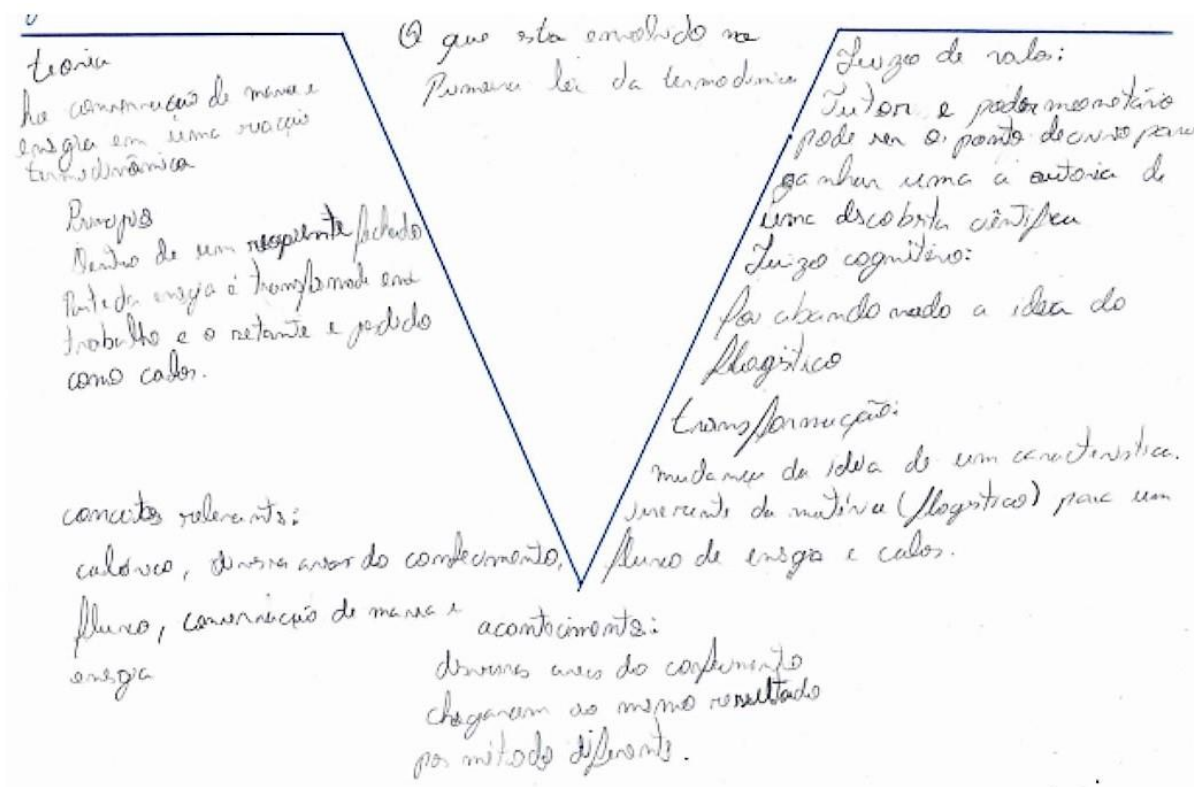 O que esta envolvido na
Primeira lei da termodinica
teoria
ha conservação de massa e
energia em uma reação
termodinâmica
Principios
Dentro de um recipiente fechado
Parte da energia é transformada em
trabalho e o restante e perdido
como calor.
conceitos relevants:
calórico, áreas do conhecimento,
fluxo, conservação de massa e
energia
acontecimento:
diversas areas do conhecimento
chegaram ao mesmo resultado
por método diferente.
Juizo de valor:
Tutor e poder monetário
pode ser o ponto decisivo para
ganhar uma a autoria de
uma discobrta científica
Juizo cognitivo:
foi abandonado a idea do
flogístico
transformação:
mudança da idéia de um caracteristica.
inerente da matéria (flogistico) para um
fluxo de energia e calor.